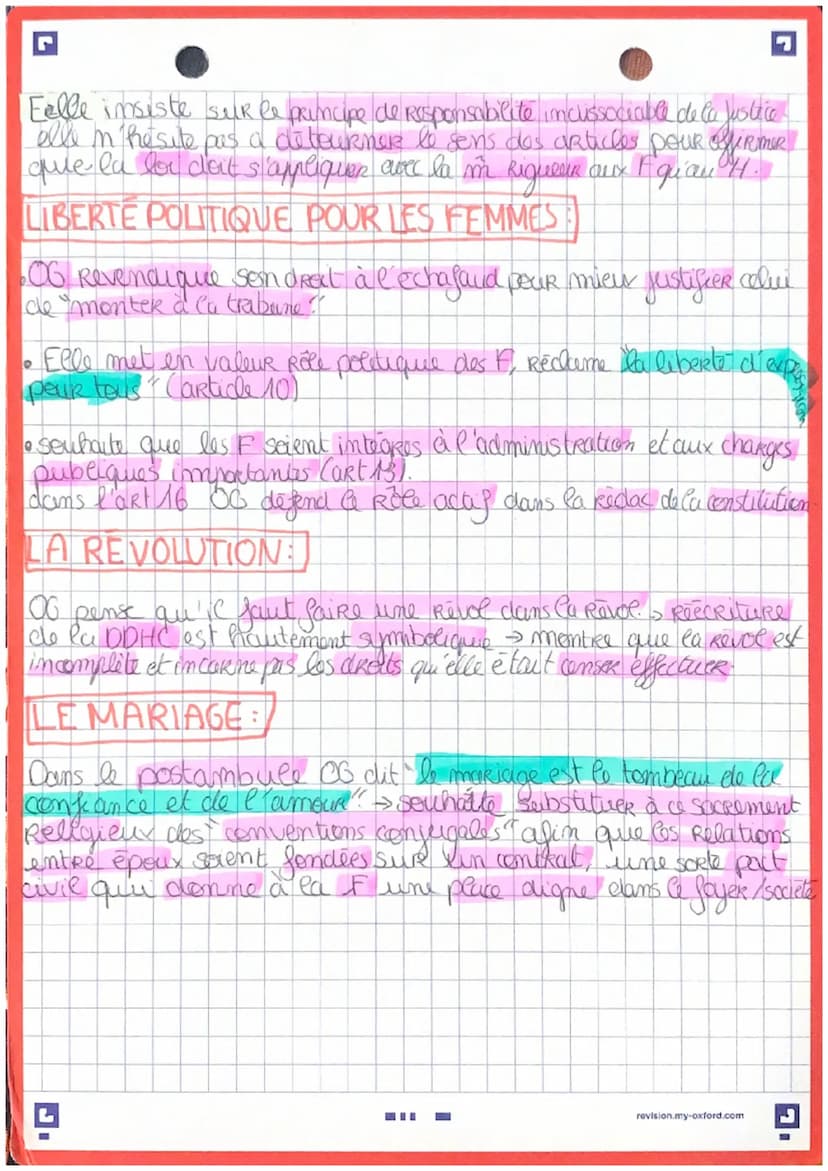 Eelle insiste sur le principe de responsabilité indissociable de la justice
elle n'hésite pas à détourner le sens des articles pour affirmer
que la loi doit s'appliquer avec la m̂ rigueur aux F qu'au H.
LIBERTÉ POLITIQUE POUR LES FEMMES :
• OG revendique son droit à l'échafaud pour mieux justifier celui
de "monter à la tribune".
• Elle met en valeur rôle politique des F, réclame "la liberté d'expression
pour tous" (article 10)
• souhaite que les F soient intégrés à l'administration et aux charges
publiques importantes (art 13).
dans l'art 16 OG défend le rôle actif dans la rédac de la constitution
LA RÉVOLUTION :
OG pense qu'il faut faire une révol dans la révol. → réécriture
de la DDHC est hautement symbolique → montre que la révol est
incomplète et incarne pas les droits qu'elle était censer effectuer
LE MARIAGE :
Dans le postambule OG dit "le mariage est le tombeau de la
confiance et de l'amour". → souhaite substituer à ce sacrement
religieux des "conventions conjugales" afin que les relations
entre époux soient fondées sur un contrat, une sorte pact
civil qui donne à la F une place digne dans le foyer/société
revision.my-oxford.com